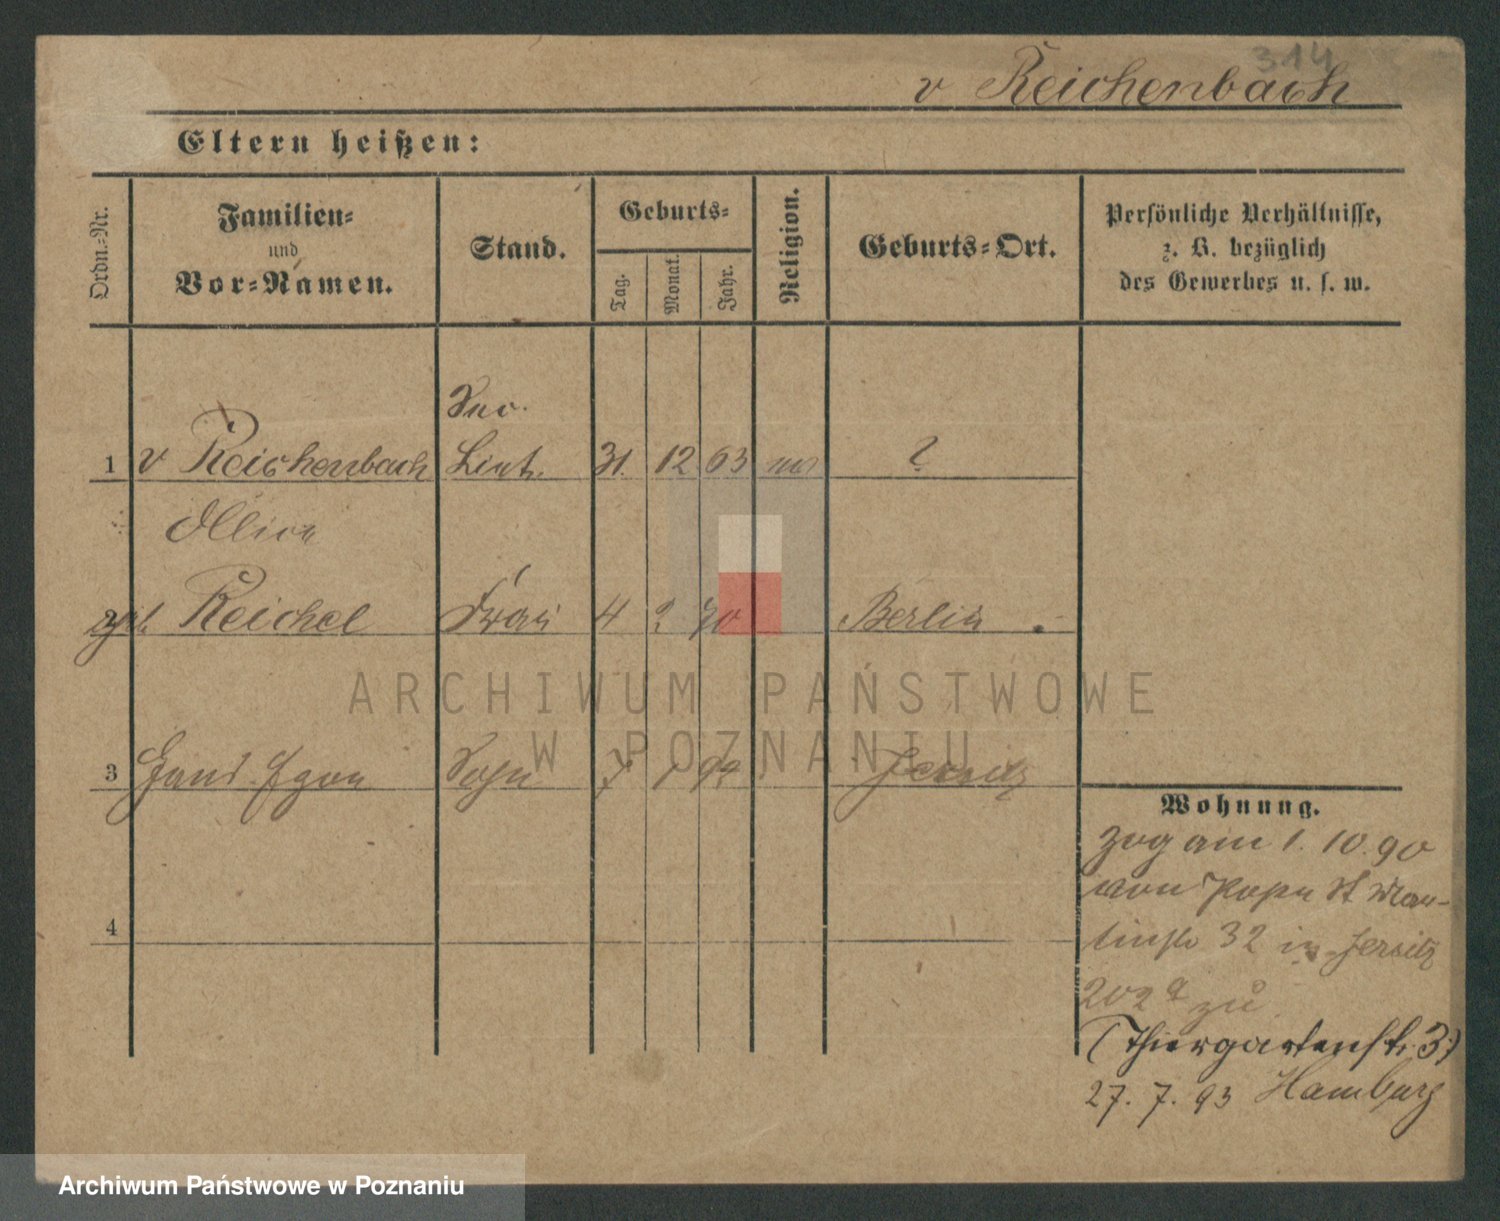 314
v Reichenbach
Eltern heißen:
Ordn.-Nr.
Familien-
und
Vor-Namen.
Stand.
Geburts-
Tag.
Monat.
Jahr.
Religion.
Geburts-Ort.
Persönliche Verhältnisse,
z. B. bezüglich
des Gewerbes u. s. w.
Sec.
1 v Reichenbach Lieut. 31. 12 63 ?
2 geb. Reichel Frau 4 2 70 Berlin
3 Hans Egon Sohn 7 1 92 Jersitz
4
Wohnung.
zog am 1. 10. 90
von Posen St Mar-
tinstr 32 in Jersitz
202 a zu
(Thiergartenstr. 3)
27. 7. 93 Hamburg
ARCHIWUM PAŃSTWOWE
W POZNANIU
Archiwum Państwowe w Poznaniu